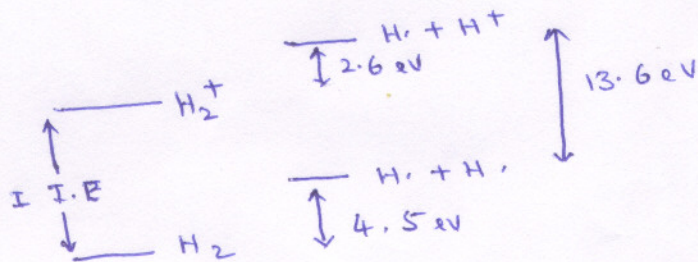 H· + H⁺
2.6 ev
13.6 eV
H₂⁺
H· + H·
I I.E
4.5 ev
H₂